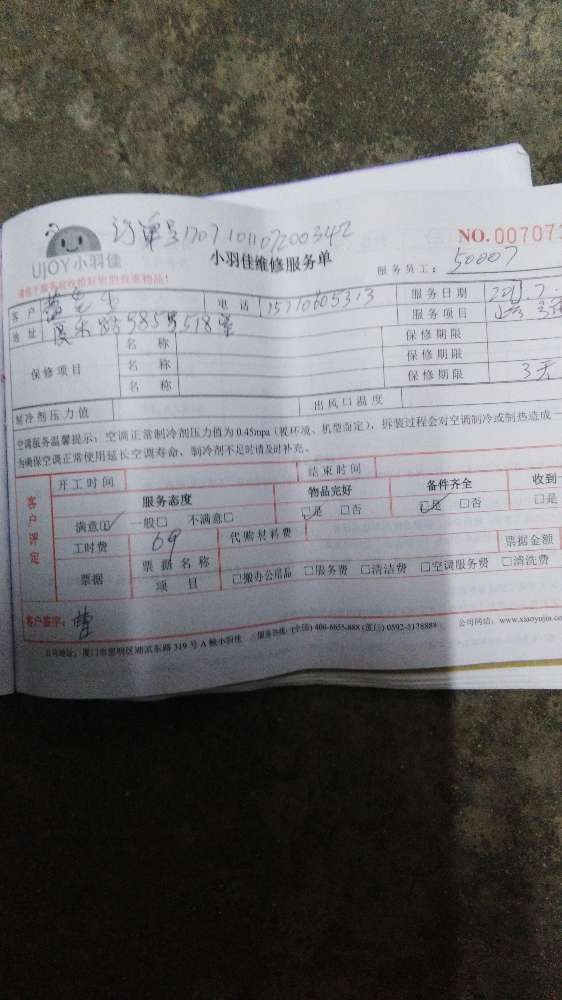 订单号1707101107200342
UJOY小羽佳
小羽佳维修服务单
NO.007073
服务员工: 50007
客户
电话 15710605313
服务日期
地址 585号518室
服务项目
保修项目
名称
保修期限
名称
保修期限
名称
保修期限 3天
制冷剂压力值
出风口温度
空调服务温馨提示: 空调正常制冷剂压力值为0.45mpa (视环境、机型而定), 拆装过程会对空调制冷或制热造成一
为确保空调正常使用延长空调寿命, 制冷剂不足时请及时补充。
客户评定
开工时间
结束时间
服务态度
物品完好
备件齐全
收到
满意☑ 一般□ 不满意□
☑是 □否
☑是 □否
□是
工时费 69
代购材料费
票据
票据名称
票据金额
项目
□搬办公用品 □服务费 □清洁费 □空调服务费 □清洗费
客户签字:
公司地址: 厦门市思明区湖滨东路319号A栋小羽佳
服务热线: (全国) 400-6655-888 (厦门) 0592-5178888
公司网站: www.xiaoyujia.com